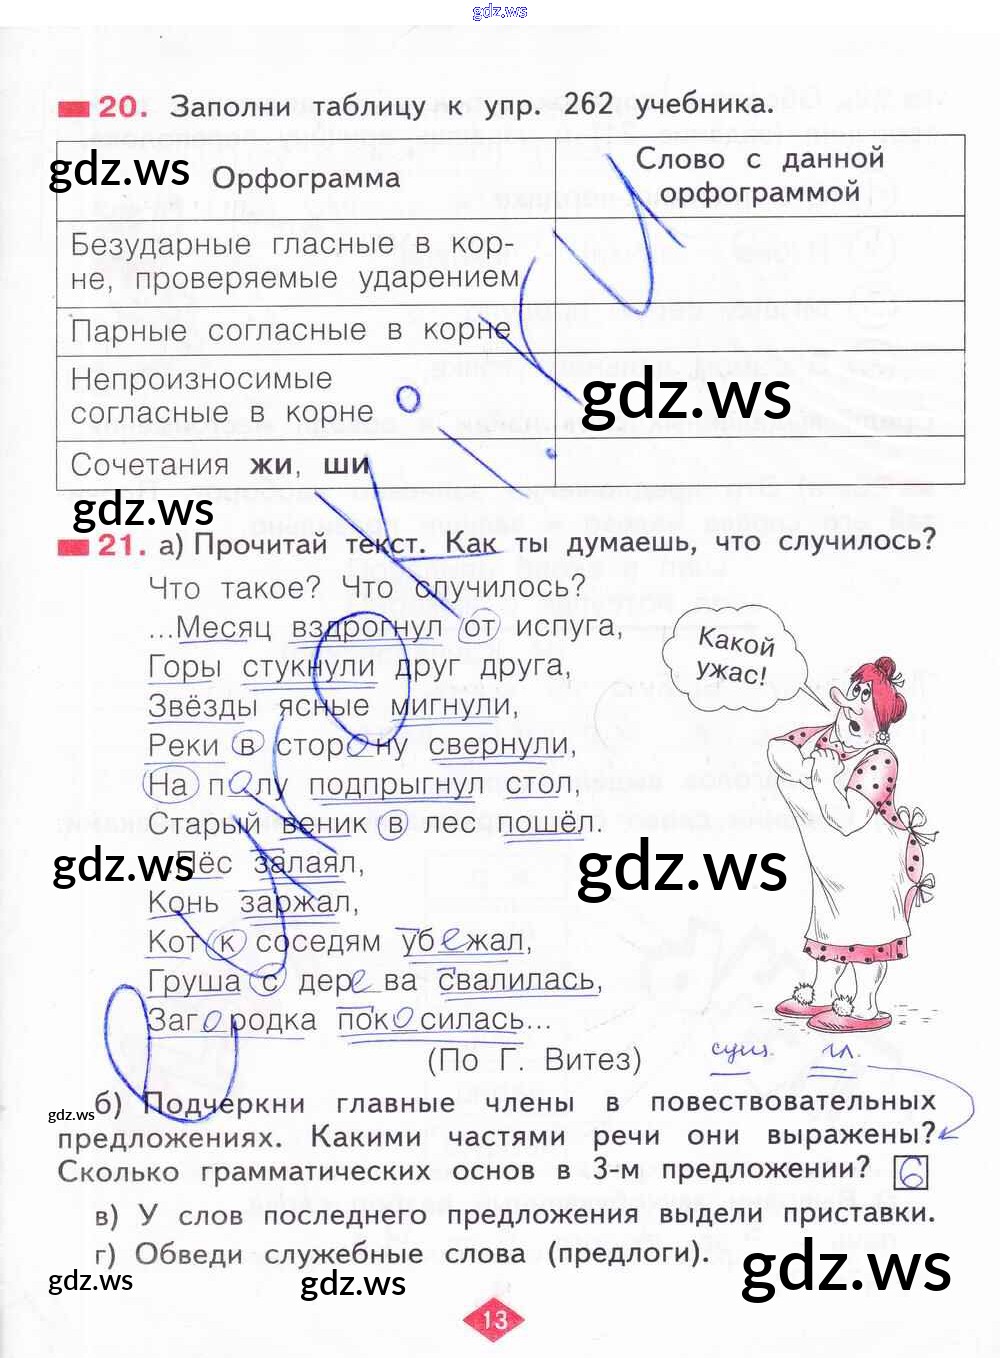 gdz.ws
20. Заполни таблицу к упр. 262 учебника.
gdz.ws
Орфограмма
Слово с данной
орфограммой
Безударные гласные в кор-
не, проверяемые ударением
Парные согласные в корне
Непроизносимые
согласные в корне
gdz.ws
Сочетания жи, ши
gdz.ws
21. а) Прочитай текст. Как ты думаешь, что случилось?
Что такое? Что случилось?
...Месяц вздрогнул от испуга,
Горы стукнули друг друга,
Звёзды ясные мигнули,
Реки в сторону свернули,
На полу подпрыгнул стол,
Старый веник в лес пошёл.
Пёс залаял,
Конь заржал,
Кот к соседям убежал,
Груша с дерева свалилась,
Загородка покосилась...
(По Г. Витез)
Какой
ужас!
gdz.ws
gdz.ws
сущ. гл.
gdz.ws
б) Подчеркни главные члены в повествовательных
предложениях. Какими частями речи они выражены?
Сколько грамматических основ в 3-м предложении? 6
в) У слов последнего предложения выдели приставки.
г) Обведи служебные слова (предлоги).
gdz.ws
gdz.ws
gdz.ws
13